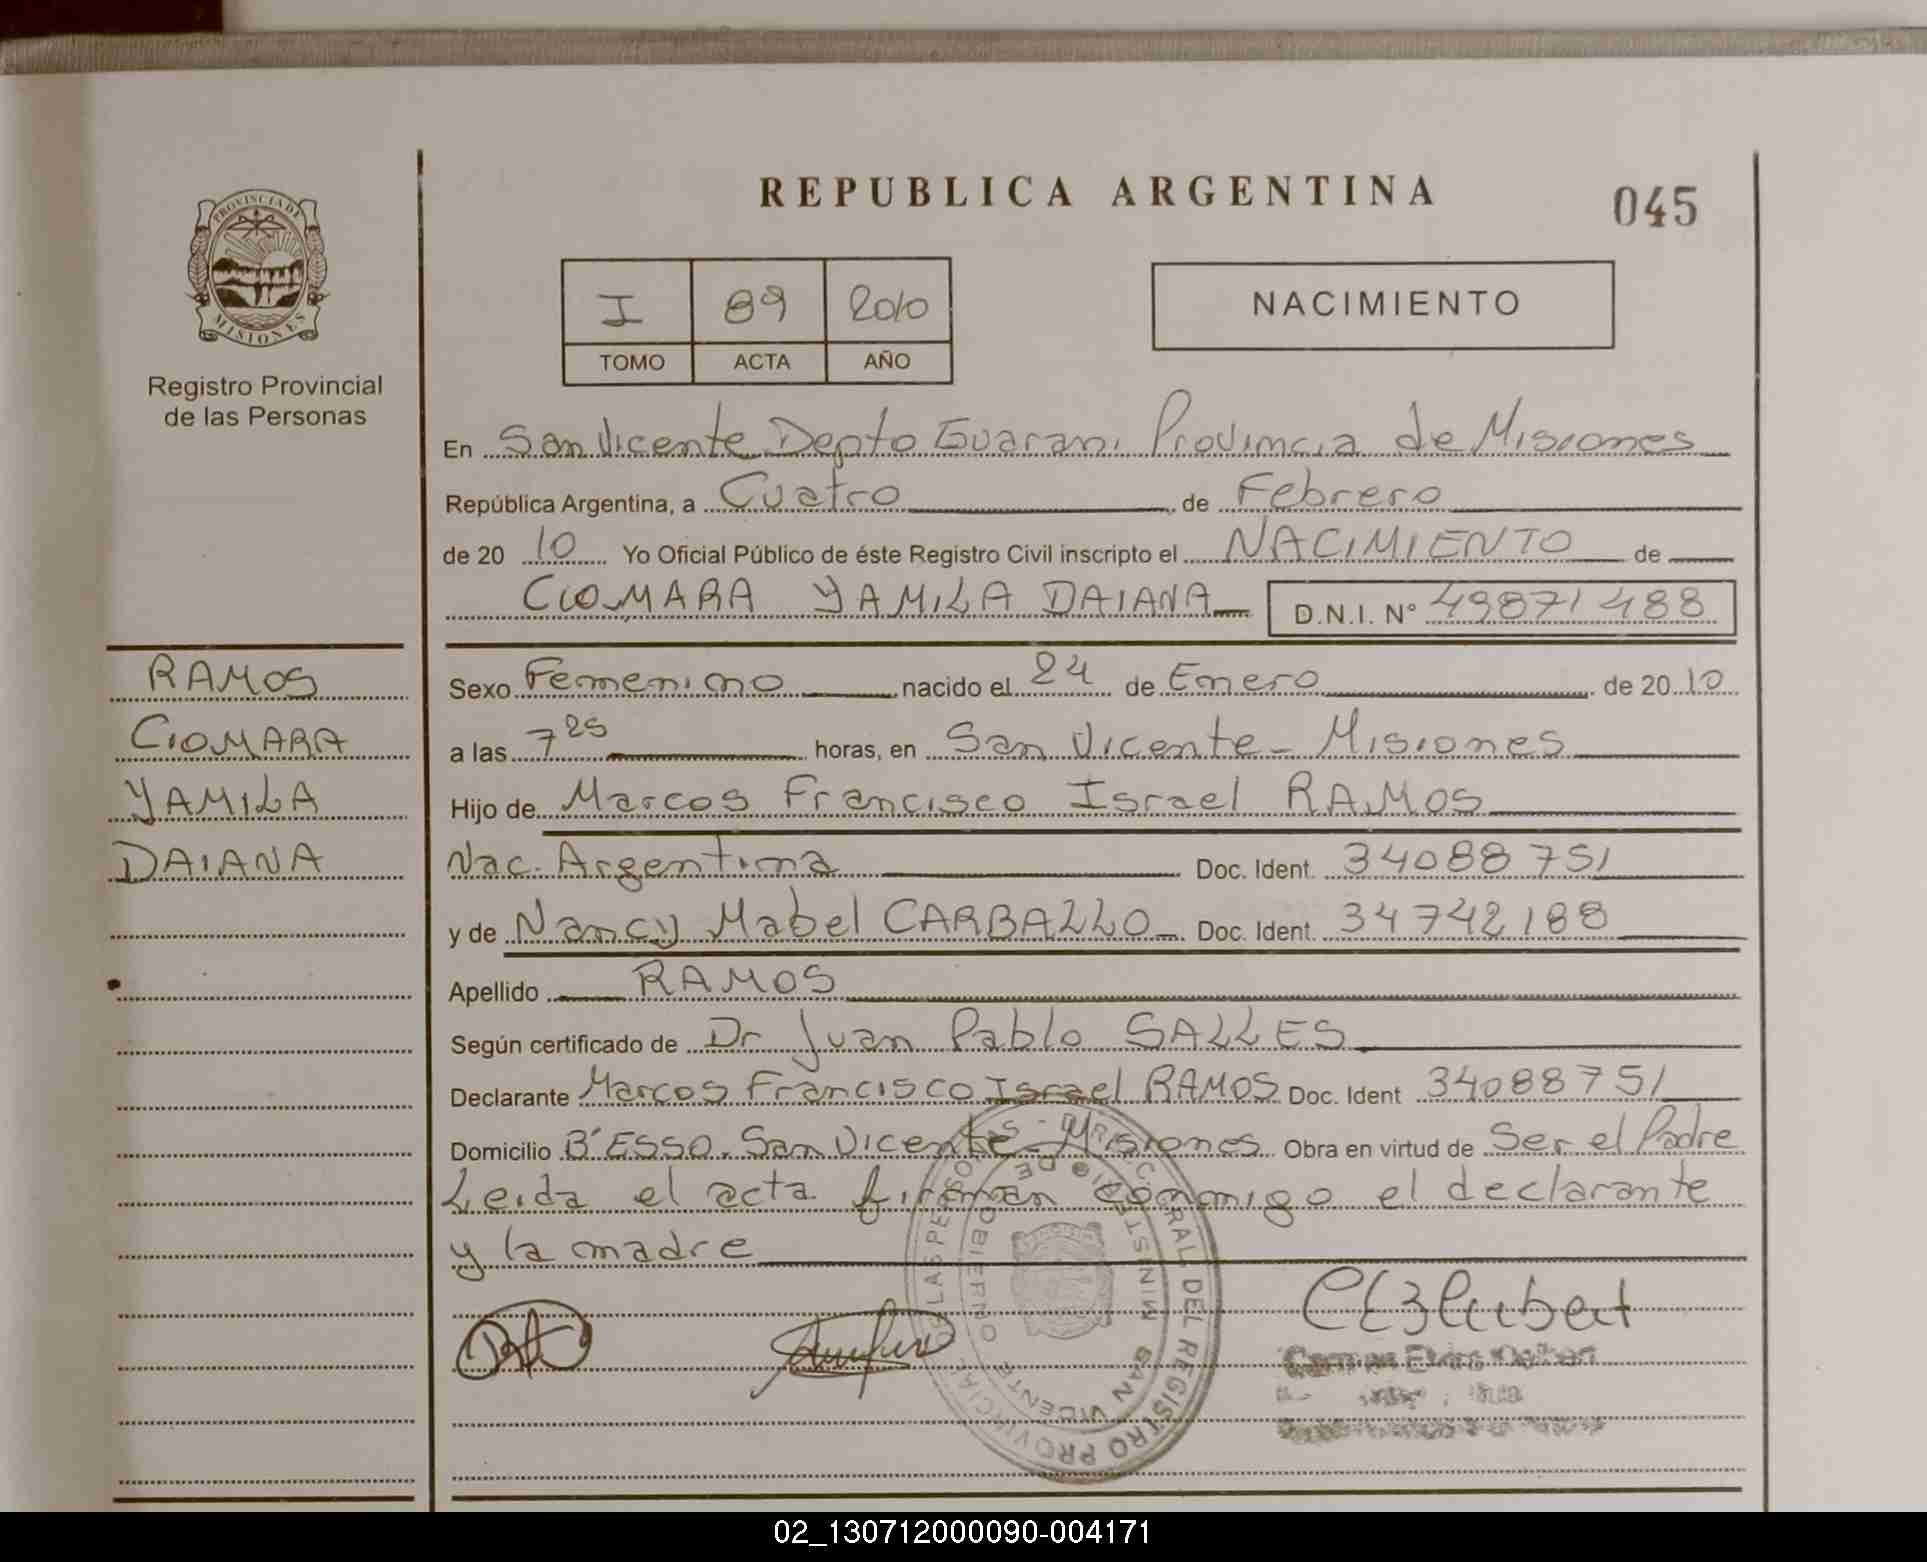 REPUBLICA ARGENTINA
045
PROVINCIA DE
MISIONES
Registro Provincial
de las Personas
I 89 2010
TOMO ACTA AÑO
NACIMIENTO
En San Vicente Depto Guarani Provincia de Misiones
República Argentina, a Cuatro de Febrero
de 20 10 Yo Oficial Público de éste Registro Civil inscripto el NACIMIENTO de
CIOMARA YAMILA DAIANA D.N.I. N° 49871488
RAMOS
CIOMARA
YAMILA
DAIANA
Sexo Femenino nacido el 24 de Enero de 20 10
a las 7 25 horas, en San Vicente - Misiones
Hijo de Marcos Francisco Israel RAMOS
Nac. Argentina Doc. Ident. 34088751
y de Nancy Mabel CARBALLO Doc. Ident. 34742188
Apellido RAMOS
Según certificado de Dr Juan Pablo SALLES
Declarante Marcos Francisco Israel RAMOS Doc. Ident 34088751
Domicilio B° ESSO. San Vicente - Misiones Obra en virtud de Ser el Padre
Leida el acta firman conmigo el declarante
y la madre
REGISTRO PROVINCIAL DE LAS PERSONAS
MINISTERIO DE GOBIERNO
SAN VICENTE
02_130712000090-004171